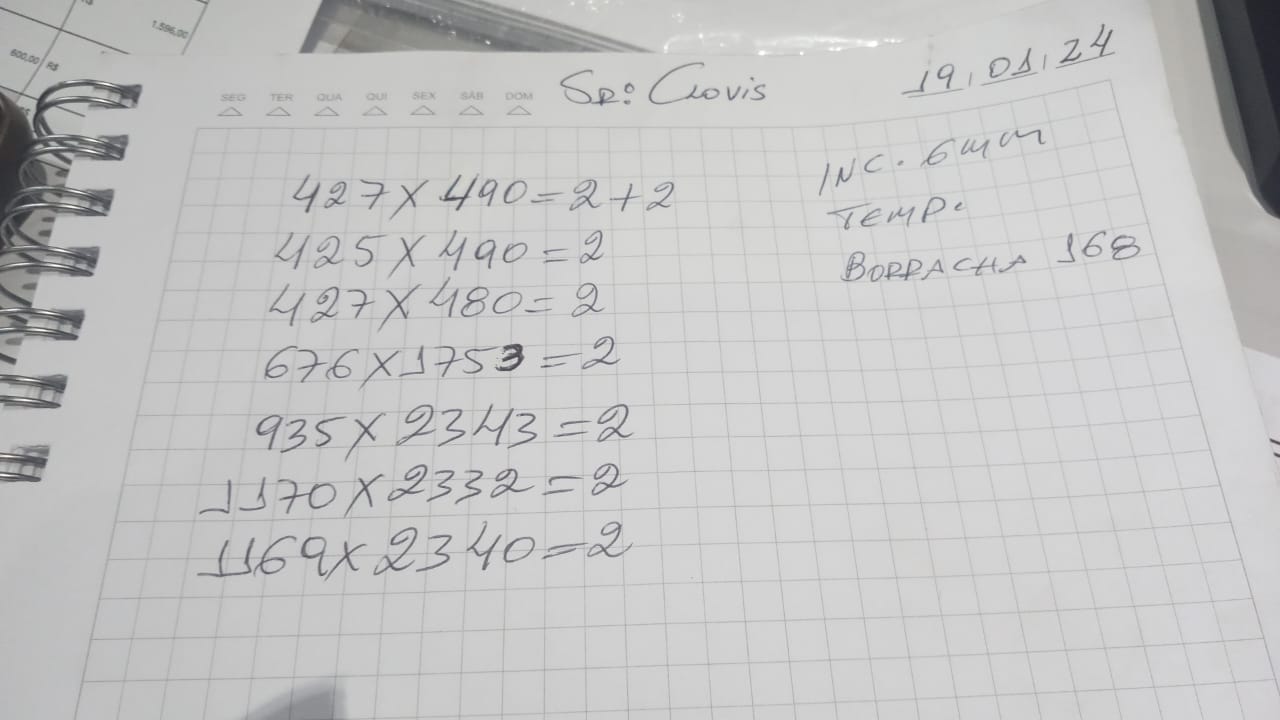 1.596,00
600,00 R$
R$
SEG TER QUA QUI SEX SÁB DOM
SR: Clovis
19.01.24
427 X 490 = 2 + 2
425 X 490 = 2
427 X 480 = 2
676 X 1753 = 2
935 X 2343 = 2
1170 X 2332 = 2
1169 X 2340 = 2
INC. 6mm
TEMP.
BORRACHA 168